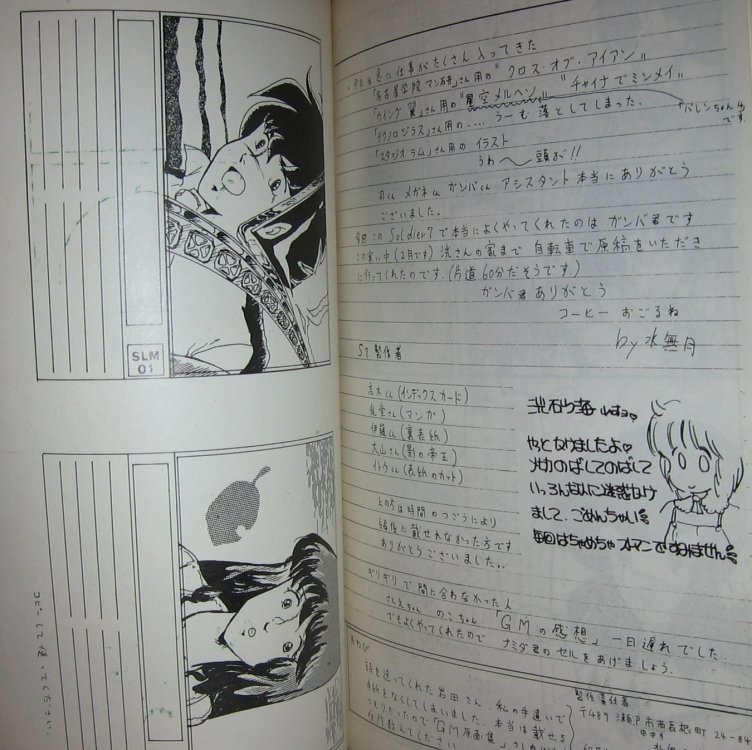 SLM
01
コピーして使ってください。
今回は急に仕事がたくさん入ってきた
「名古屋学院マン研」さん用の"クロス・オブ・アイアン"
「ウイング翼」さん用の"星空メルヘン" "チャイナでミンメイ"
「テクノロジラス」さん用の.... うーむ落としてしまった.
「スタジオラム」さん用の イラスト
です.
うわ〜頭が!!
司くん メガネくん ガンバくん アシスタント本当にありがとう
ございました.
今回この Soldier7 で本当によくやってくれたのは ガンバ君です
この寒い中(2月です) 洸さんの家まで 自転車で原稿をいただき
に行ってくれたのです.(片道60分だそうです.)
ガンバ君ありがとう
コーヒー おごるね
by 水無月
S7 製作者
高木くん(インデックスカード)
さん(マンガ)
伊藤くん(裏表紙)
大山さん(影の帝王)
イトウくん(表紙のカット)
とのちは時間のつごうにより
最後に載せれなかった方です
ありがとうございました..
ギリギリで間に合わなかった人
さとえちゃん のこちゃん 「GMの感想」一日遅れでした
でもよくやってくれたので ナミダ君のセルをあげましょう.
やっとなりましたよ♡
メカのばしてのばして
いろんな人に迷惑なけ
まして. ごめんちゃい
毎回はちゃめちゃ ですみません
おわび
詩を送ってくれた岩田さん、私の手違いで
手紙をなくしてしまいました. 本当は載せる
つもりだったので「GM原画集」
住所教えてください
製作責任者
〒489 瀬戸市西長根町 24-84